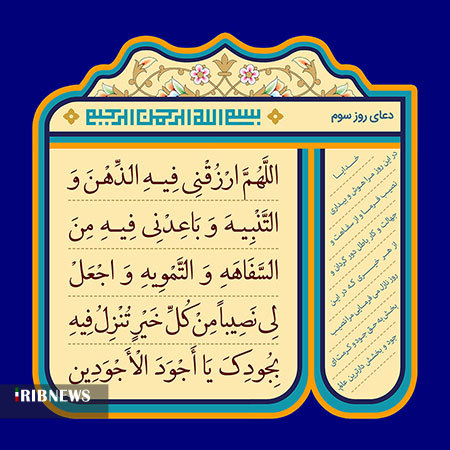 دعای روز سوم
بسم الله الرحمن الرحیم
اللَّهُمَّ ارْزُقْنِی فِیهِ الذِّهْنَ وَ
التَّنْبِیهَ وَ بَاعِدْنِی فِیهِ مِنَ
السَّفَاهَهِ وَ التَّمْوِیهِ وَ اجْعَلْ
لِی نَصِیباً مِنْ کُلِّ خَیْرٍ تُنْزِلُ فِیهِ
بِجُودِکَ یَا أَجْوَدَ الْأَجْوَدِینَ
خدایا
در این روز مرا هوش و بیداری
نصیب فرما و از سفاهت و
جهالت و کار باطل دور گردان و
از هر خیری که در این
روز نازل می فرمایی مرا نصیب
بخش به حق جود و کرمت ای
جود و بخشش دارترین عالم
iRIBNEWS